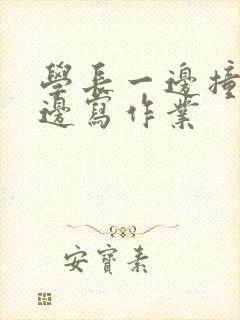 學長一邊撞一
邊寫作業
安寶素